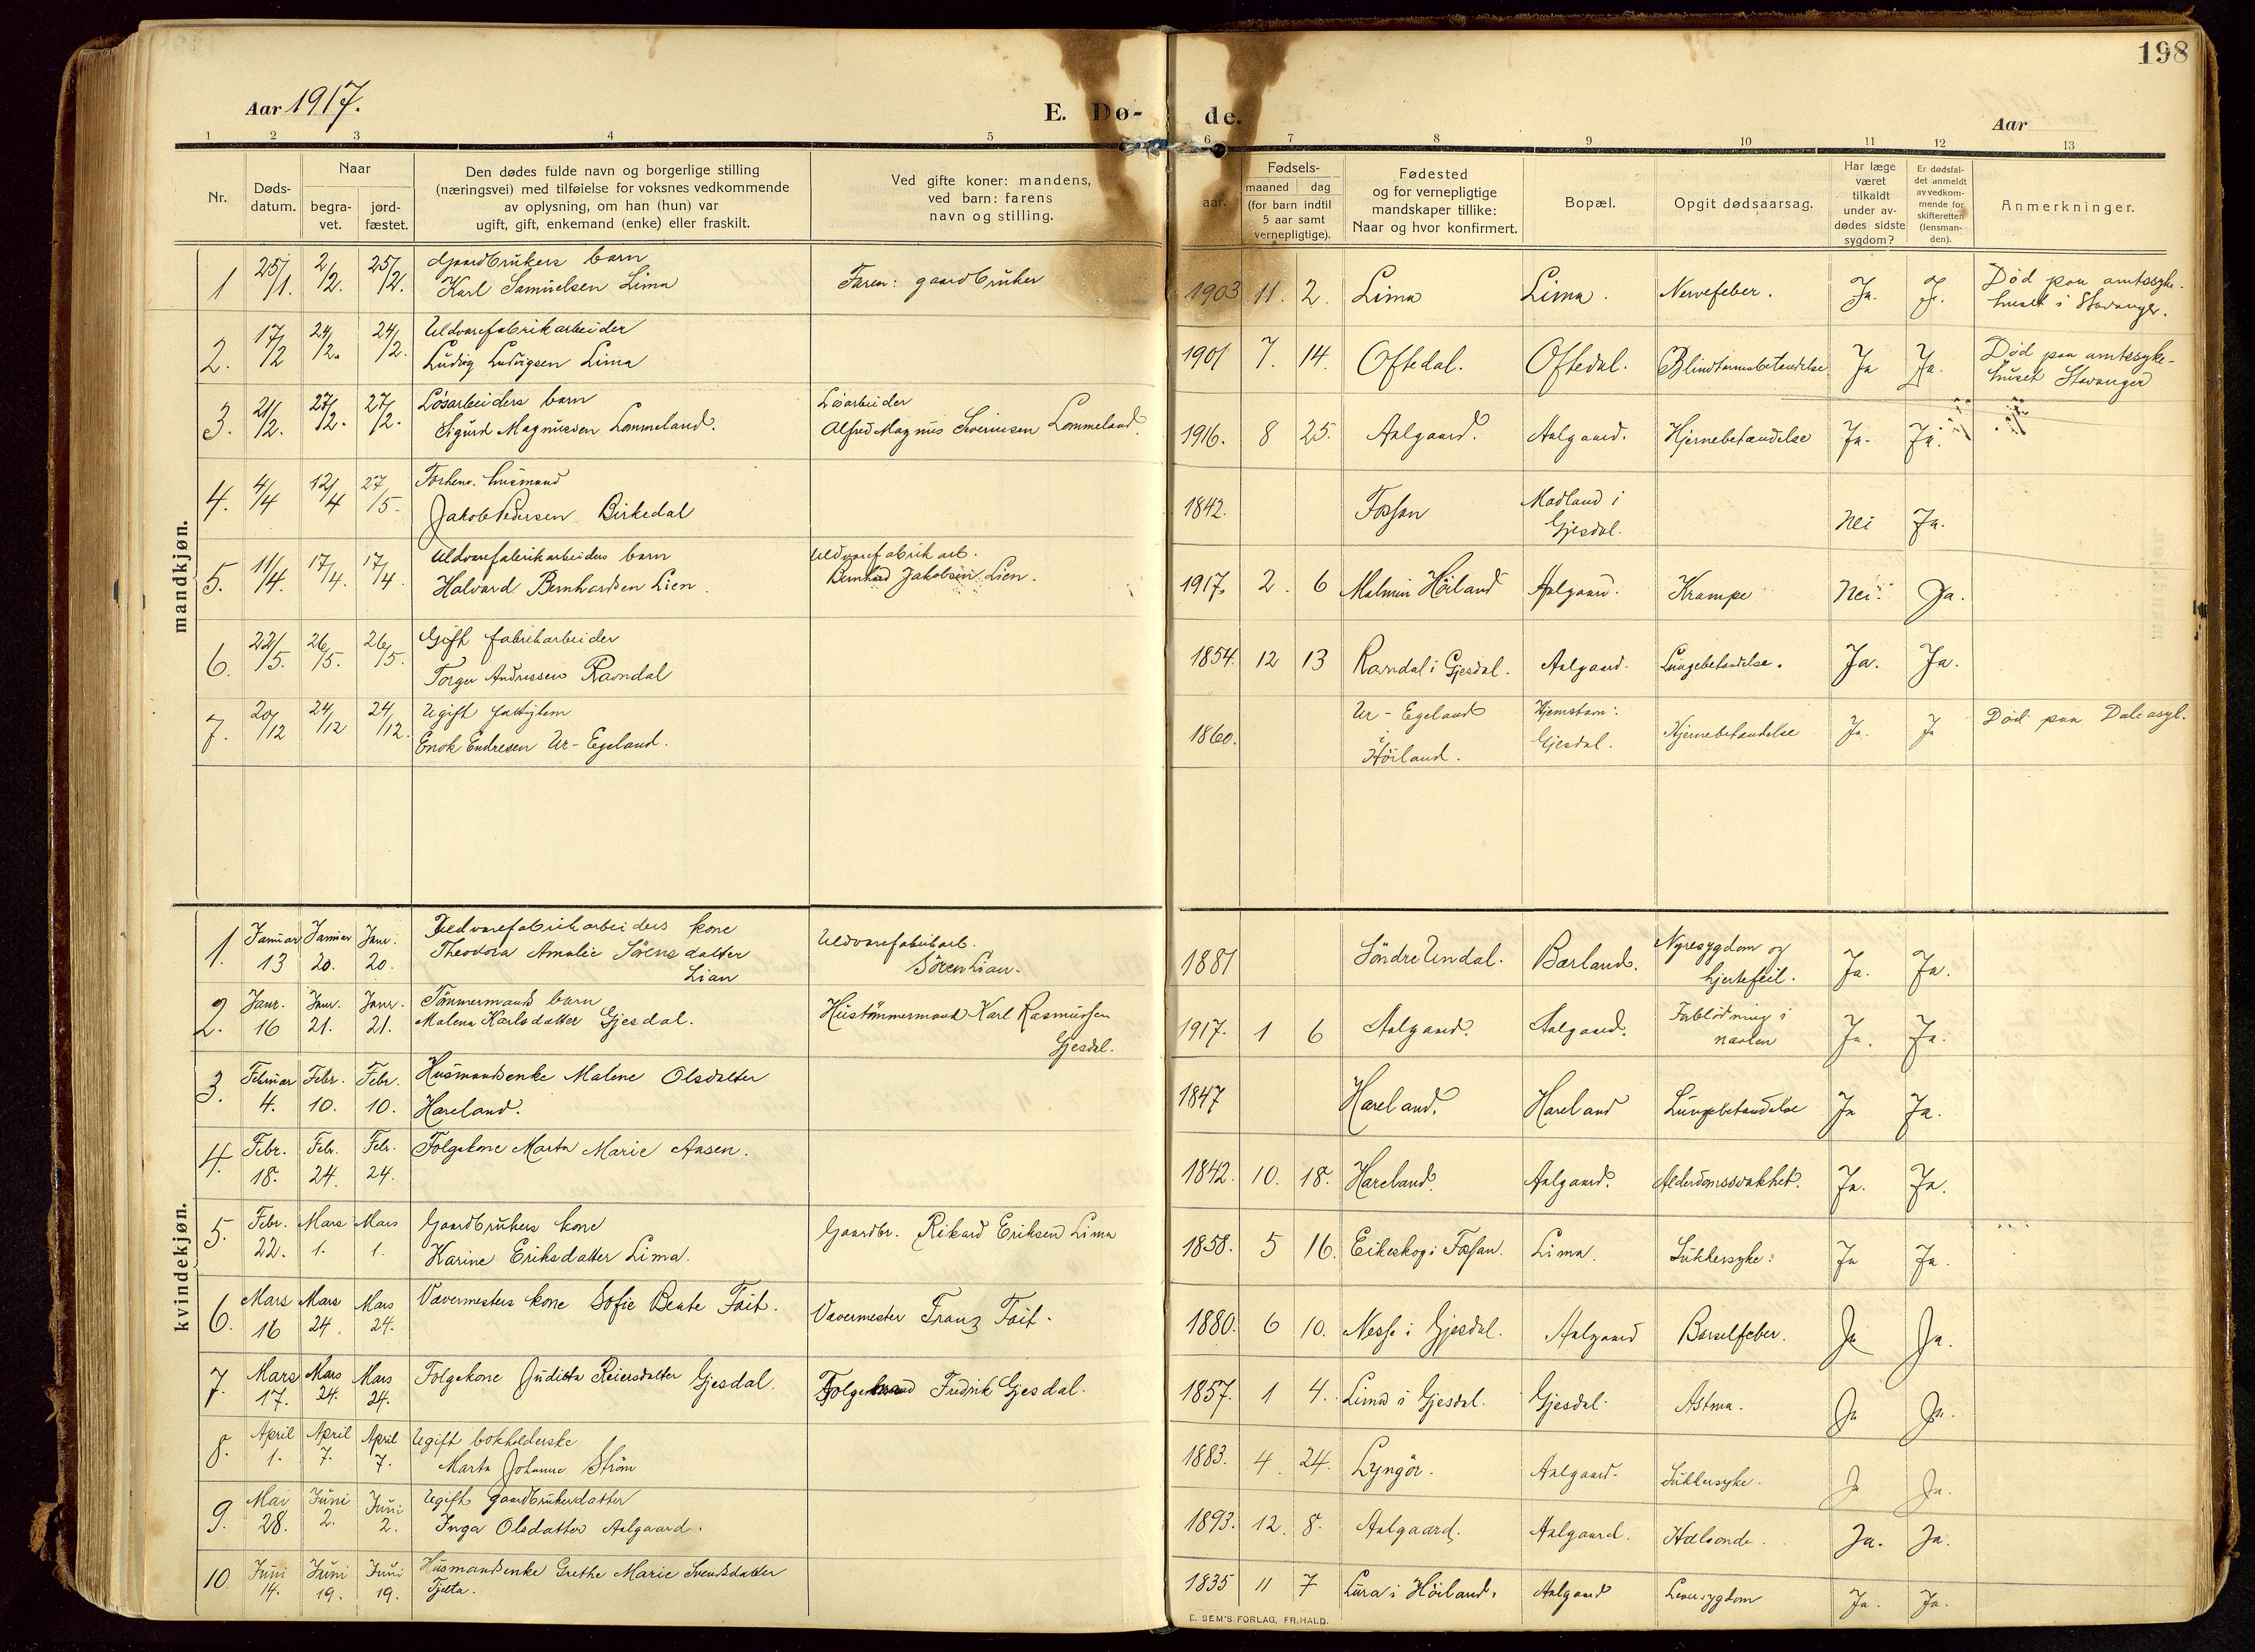 198
Aar 1917.
E. Dø-
de.
Aar
1 2 3 4 5 6 7 8 9 10 11 12 13
Nr.
Døds-
datum.
Naar
begra-
vet.
jord-
fæstet.
Den dødes fulde navn og borgerlige stilling
(næringsvei) med tilføielse for voksnes vedkommende
av oplysning, om han (hun) var
ugift, gift, enkemand (enke) eller fraskilt.
Ved gifte koner: mandens,
ved barn: farens
navn og stilling.
Fødsels-
aar.
maaned dag
(for barn indtil
5 aar samt
vernepligtige).
Fødested
og for vernepligtige
mandskaper tillike:
Naar og hvor konfirmert.
Bopæl.
Opgit dødsaarsag.
Har læge
været
tilkaldt
under av-
dødes sidste
sygdom?
Er dødsfal-
det anmeldt
av vedkom-
mende for
skifteretten
(lensman-
den).
Anmerkninger.
mandkjøn.
1 25/1. 2/2. 25/2. Gaardbrukers barn
Karl Samuelsen Lima
Faren: gaardbruker
1903 11. 2. Lima Lima. Nervefeber. Ja. J.
Død paa amtssyke-
huset i Stavanger.
2. 17/2 24/2. 24/2. Uldvarefabrikarbeider
Ludvig Ludvigsen Lima
1901 7. 14. Oftedal. Oftedal. Blindtarmsbetændelse Ja Ja.
Død paa amtssyke-
huset Stavanger
3. 21/2. 27/2. 27/2. Løsarbeiders barn
Sigurd Magnussen Lommeland.
Løsarbeider
Alfred Magnus Severinsen Lommeland.
1916. 8 25. Aalgaard. Aalgaard. Hjernebetændelse Ja. Ja.
4. 4/4 12/4 27/5. Forhenv. husmand
Jakob Pedersen Birkedal
1842. Fossan
Madland i
Gjesdal.
Nei Ja.
5. 11/4. 17/4. 17/4. Uldvarefabrikarbeiders barn
Halvard Bernhardsen Lien.
Uldvarefabrikarb.
Bernhard Jakobsen Lien.
1917. 2. 6 Malmin Höiland Aalgaard. Krampe Nei. Ja.
6. 22/5. 26/5. 26/5. Gift fabrikarbeider
Torger Andreassen Ravndal
1854. 12 13 Ravndal i Gjesdal. Aalgaard. Lungebetændelse. Ja. Ja.
7. 20/12 24/12 24/12. Ugift fattiglem
Enok Endresen Ur-Egeland.
1860.
Ur-Egeland
i
Höiland.
Hjemstavn:
Gjesdal.
Hjernebetændelse Ja. Ja Död paa Dale asyl.
kvindekjøn.
1. Januar 13 Januar 20. Janr. 20. Uldvarefabrikarbeiders kone
Theodora Amalie Sörensdatter
Lian
Uldvarefabrikarb.
Sören Lian.
1881 Söndre Undal. Bærland.
Nyresygdom og
hjertefeil.
Ja. Ja.
2. Janr. 16 Janr. 21. Janr. 21. Tömmermands barn
Malena Karlsdatter Gjesdal.
Hustömmermand Karl Rasmussen
Gjesdal.
1917. 1 6 Aalgaard. Aalgaard.
Forblödning i
navlen
Ja. Ja.
3. Februar 4. Febr. 10. Febr. 10. Husmandsenke Malene Olsdatter
Hareland.
1847 Hareland. Hareland Lungebetændelse Ja Ja.
4. Febr. 18. Febr. 24. Febr. 24. Folgekone Marta Marie Aasen.
1842. 10. 18. Hareland. Aalgaard. Alderdomssvakhet. Ja. Ja.
5. Febr. 22. Mars 1. Mars 1. Gaardbrukers kone
Karine Eriksdatter Lima.
Gaardbr. Rikard Eriksen Lima
1858. 5 16. Eikeskog i Fossan. Lima. Sukkersyke. Ja Ja.
6. Mars 16 Mars 24. Mars 24. Vævermesters kone Sofie Beate Fait.
Vævermester Franz Fait.
1880. 6 10. Nesse i Gjesdal. Aalgaard Barselfeber. Ja Ja.
7. Mars 17. Mars 24. Mars 24. Folgekone Juditta Reiersdatter Gjesdal.
Folgemand Fredrik Gjesdal.
1857. 1 4. Lima i Gjesdal. Gjesdal. Astma. Ja Ja.
8. April 1. April 7. April 7. Ugift bokholderske
Marta Johanne Ström
1883. 4. 24. Lyngör. Aalgaard. Sukkersyke. Ja Ja.
9. Mai 28. Juni 2. Juni 2. Ugift gaardbrukerdatter
Inga Olsdatter Aalgaard.
1893. 12. 8. Aalgaard. Aalgaard. Halsonde. Ja. Ja.
10. Juni 14. Juni 19. Juni 19. Husmandsenke Grethe Marie Svendsdatter
Tjetta.
1835 11 7 Lura i Höiland. Aalgaard Leversygdom Ja. Ja.
E. SEM'S FORLAG, FR.HALD.